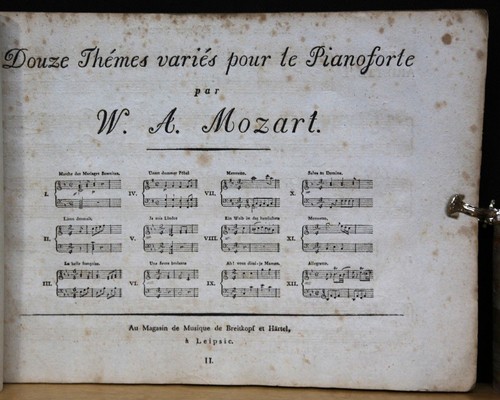 Douze Thémes variés pour le Pianoforte
par
W. A. Mozart.
Marche des Mariages Samnites.
I.
Unser dummer Pöbel
IV.
Menuetto.
VII.
Salve tu Domine.
X.
Lison dormait.
II.
Je suis Lindor
V.
Ein Weib ist das herrlichste
VIII.
Menuetto.
XI.
La belle françoise.
III.
Une fievre brulante
VI.
Ah! vous dirai-je Maman.
IX.
Allegretto.
XII.
Au Magasin de Musique de Breitkopf et Härtel,
à Leipsic.
II.